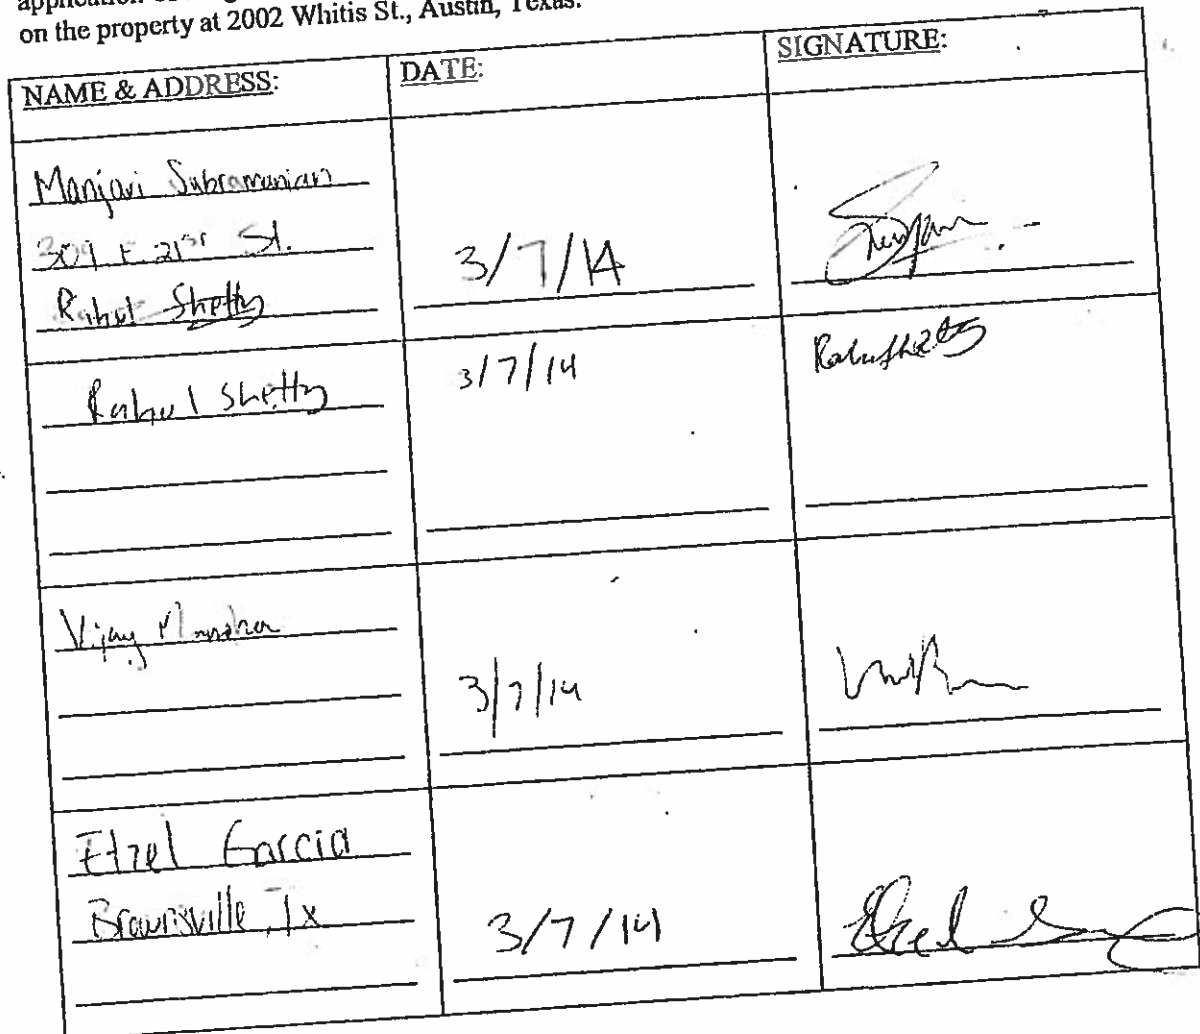 application
on the property at 2002 Whitis St., Austin, Texas.
NAME & ADDRESS:
DATE:
SIGNATURE:
Manjari Subramanian
309 E. 21st St.
Rahul Shetty
3/7/14
Rahul Shetty
3/7/14
Rahul Shetty
Vijay
3/7/14
Etzel Garcia
Brownsville, Tx
3/7/14